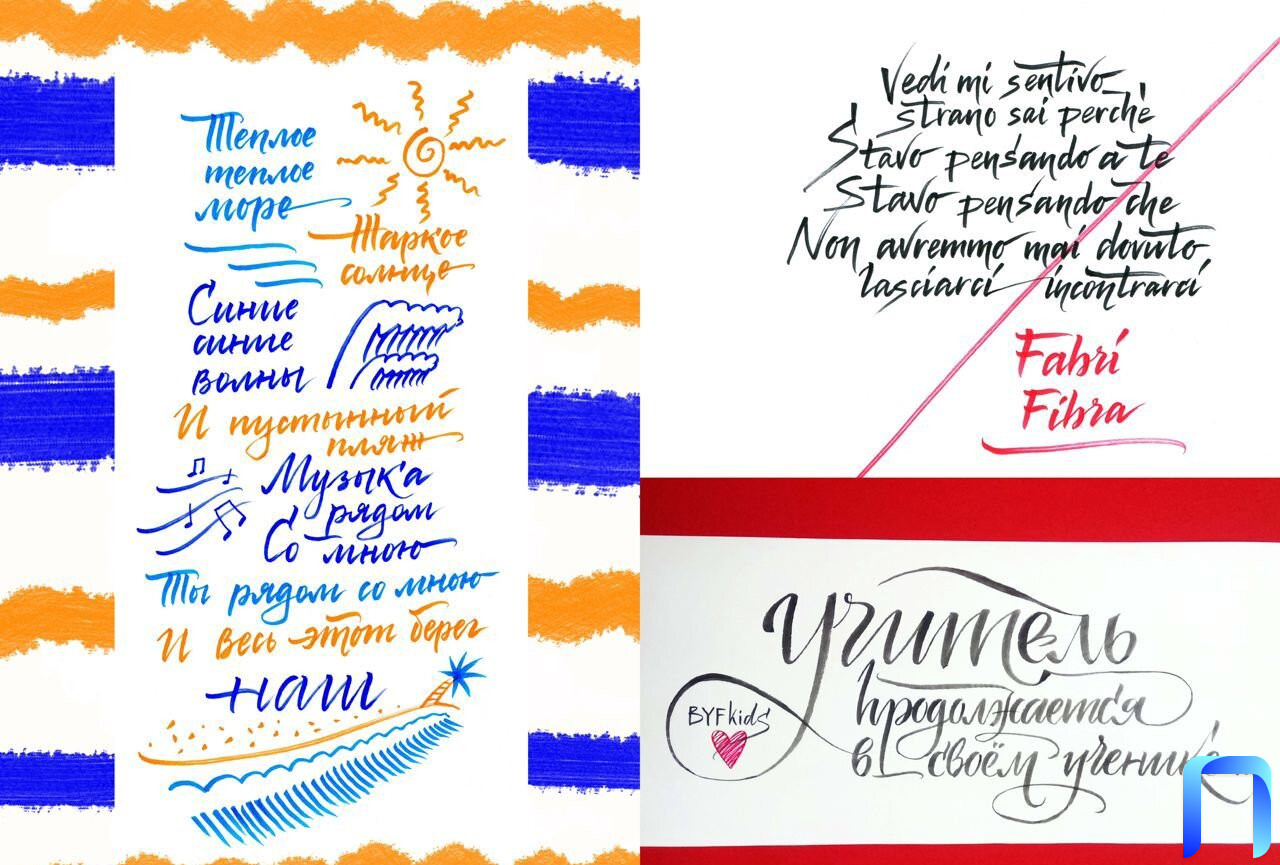 Тёплое
теплое
море
Жаркое
солнце
Синие
синие
волны
И пустынный
пляж
Музыка
рядом
Со мною
Ты рядом со мною
И весь этот берег
наш
Vedi mi sentivo
strano sai perchè
Stavo pensando a te
Stavo pensando che
Non avremmo mai dovuto
lasciarci incontrarci
Fabri
Fibra
Учитель
продолжается
в своём ученике
BYFkids